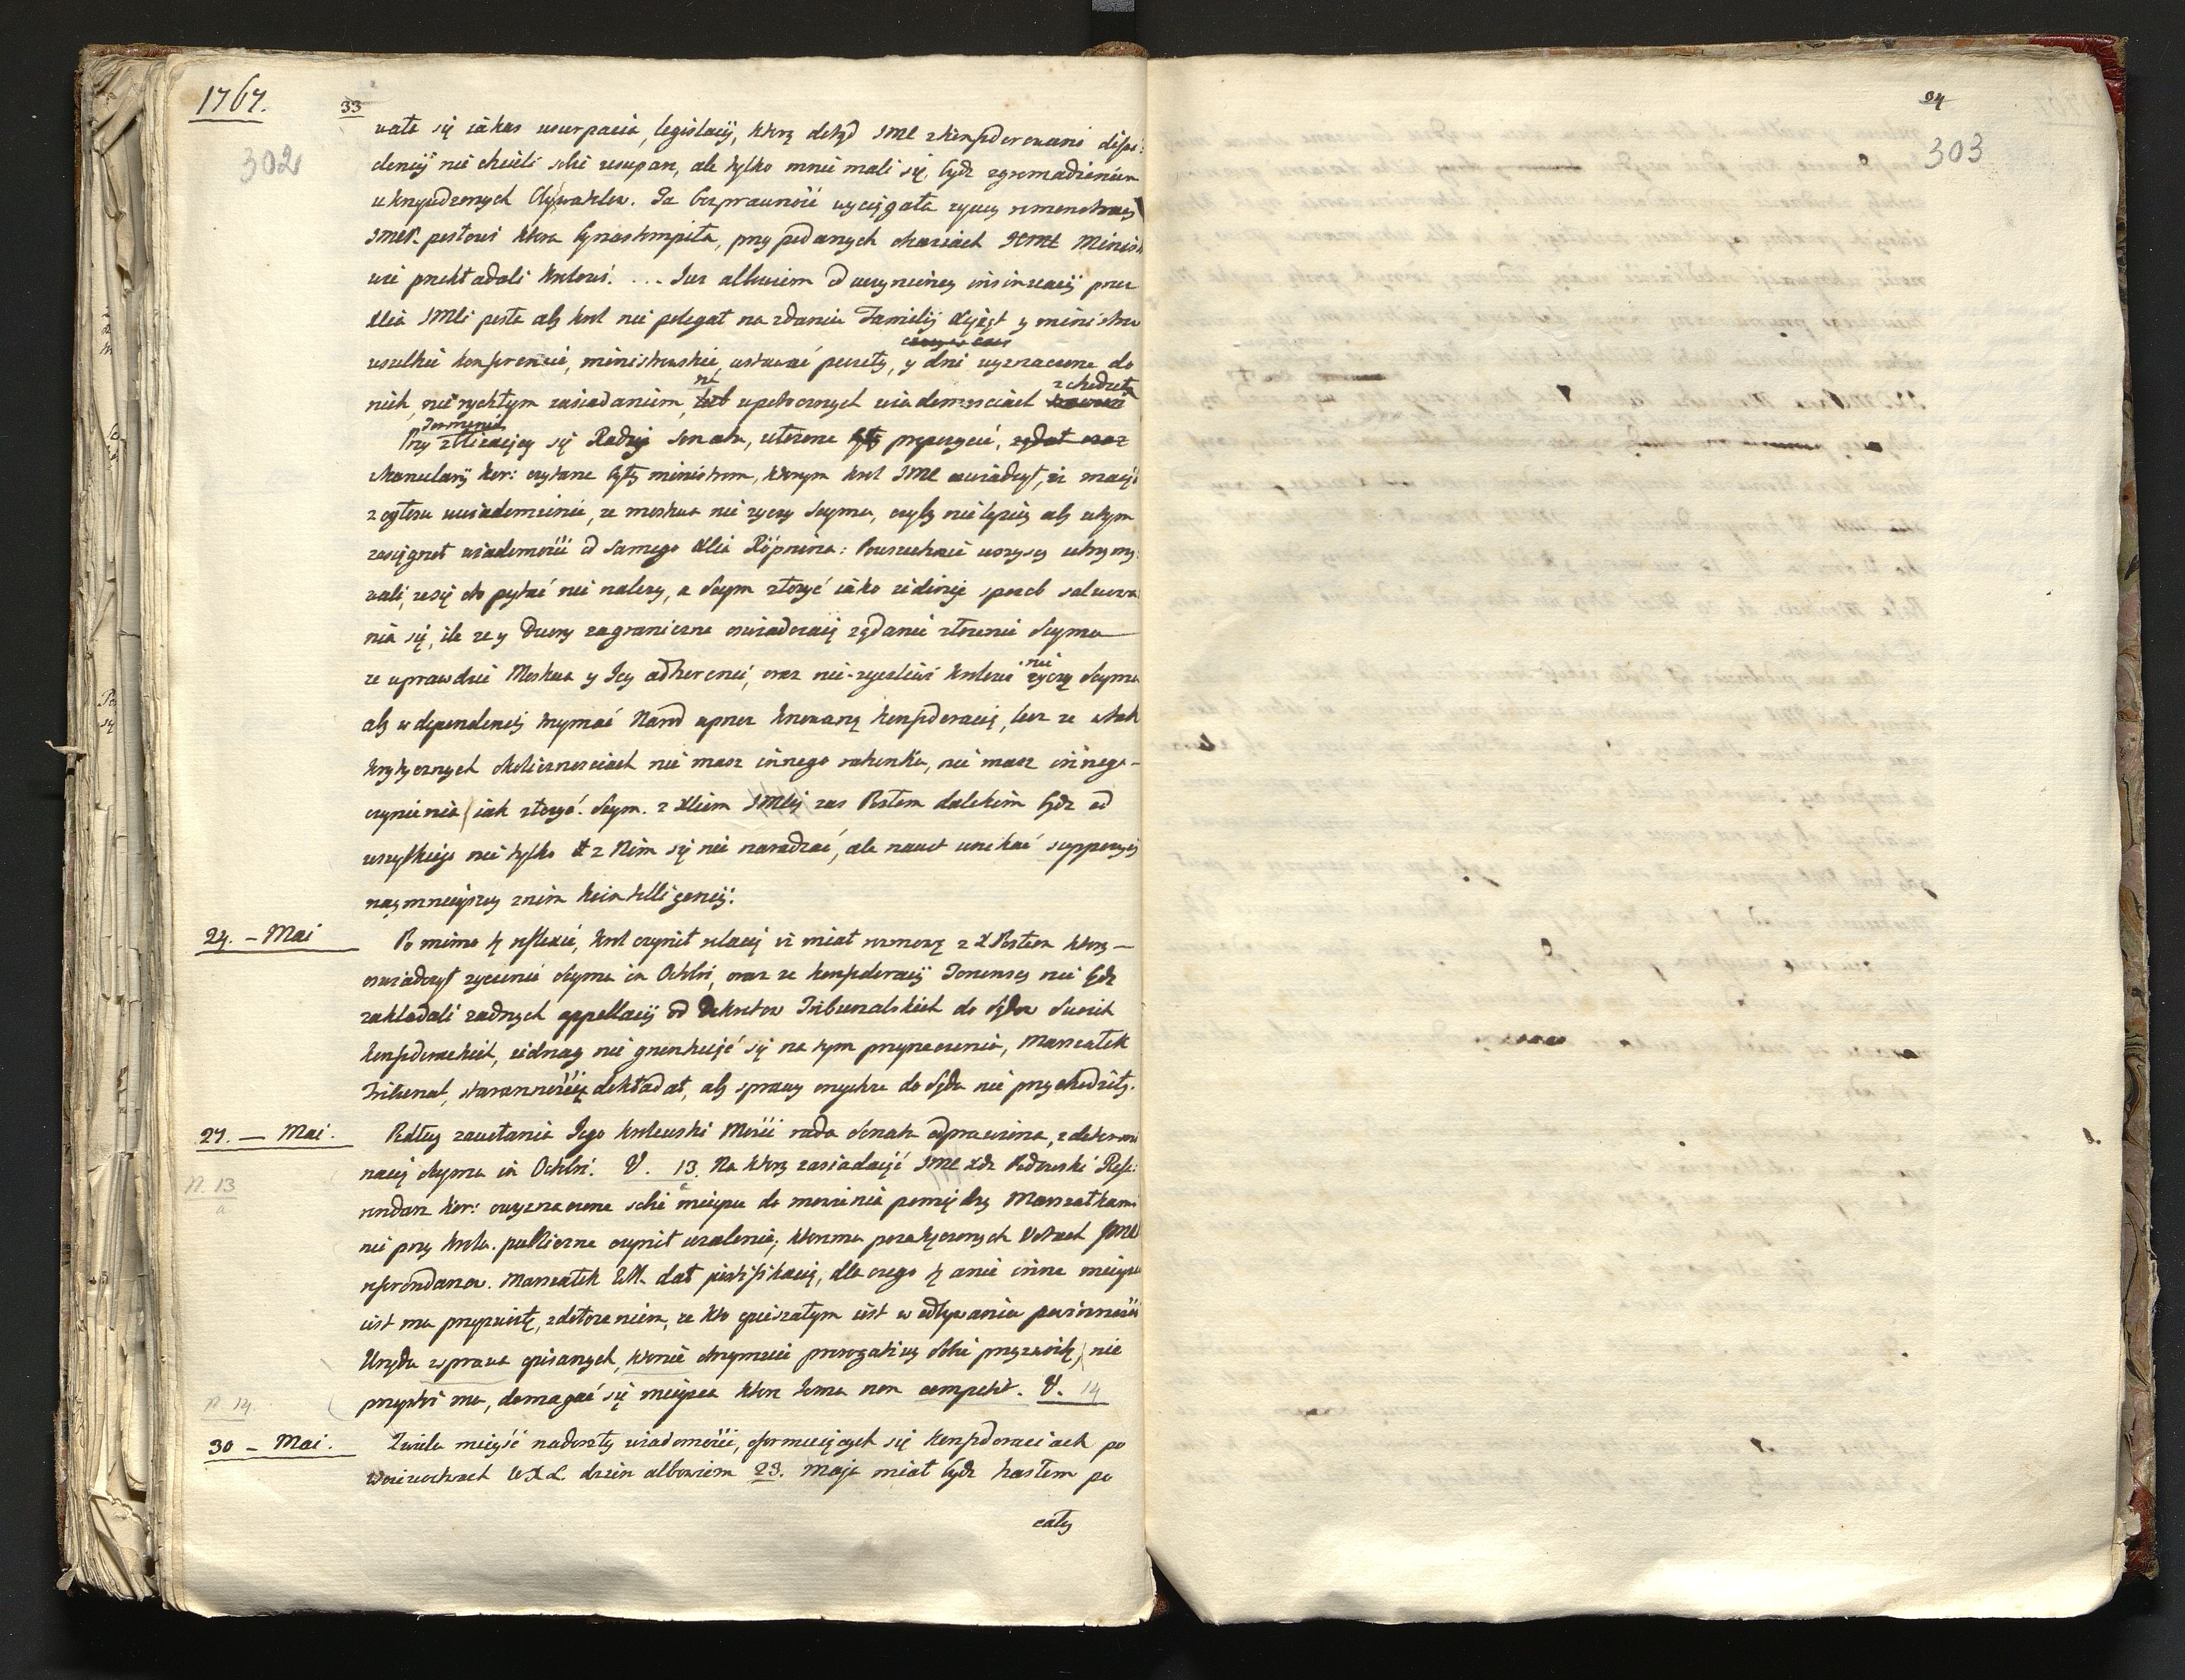 1767.
33
302
wała się iakas usurpacia, legislacij, ktorą dotąd IMC zkonfderowani dissi:
denci nie chcieli sobie usurpar, ale tylko mnie mali się bydz zgromadzeniem
ukrzywdzonych Obywatelow. Ta bezprawność wyciągała żywey remonstracij
IMCR. posłowi ktora by nastompiła, przy podanych okaziach ICMC Minist
wie przekładali krolowi. ... Iuz albowiem od uczynioney insinuacij przez
Xcia IMCi posła aby krol nie polegał na zdaniu Familij Xiążąt y ministrow
wszelkie konferencie, ministrowskie, ustawać poczeły, y dni wyznaczone do
nich, nierychłym zasiadaniem, ni upełnionych wiadomosciach zchodzeły
Przy zbliżaiącey się Radzie Senatu, ułozone propozycie,
kancelarij kor: czytane były ministrom, ktorym krol IMC oswiadczył, iz maiąc
z cętosu uwiadomienie, ze moskwa nie zyczy Seymu, czyby nie lepiey aby wtym
zasięgnoł wiadomości od samego Xcia Repnina: Powszechnie wszyscy utrzymy:
wali, ze się oto pytać nie nalezy, a Seym złozyć iako iedinyi sposob salwowa
nia się, ile ze y Dwory zagraniczne oswiadczaią ządanie złozenie Seymu
ze wprawdzie Moskwa y Iey adherenci, oraz nie-zyczliwi krolowi nie zyczą Seymu
aby w dependencij trzymać Narod uprzez knowaną konfderacią, lecz ze wtak
krytycznych okolicznosciach nie masz innego ratunku, nie masz innego-
czynienia iak złozyć Seym. z Xciem IMCią zas Posłem dalekim bydz od
wszytkiego nie tylko z Nim się nie naradzać, ale nawet unikać suppozycij
naymnieyszey znim kointelligencij.
24. - Mai
Po mimo tę reflexie, krol czynił relacij iz miał rozmowę z X Posłem ktory—
oswiadczył zyczenie Seymu in Octobri, oraz ze konfederacij Torunsey nie bydz
zakladali zadnych appellacij od Dekretow Tribunalskich do Sądow Swoich
konfderackich, iednag nie gruntuiąc się na tym przyrzeczeniu, Marszałek
Tribunal, starannością dokładał, aby sprawy onychze do Sądu nie przychodziły.
27. — Mai.
Podług zawołania Iego krolewski Mości rada Senatu odprawiona, zdetermi
nacij Seymu in Octobri. V. 13. Na ktory zasiadaiąc IMC Xdz Podoski Refe:
N. 13
a
rendarz kor: owyznaczone sobie mieysce do mowienia pomiędzy Marszałkami
nie przy krolu. publiczne czynił uzalenie; ktoremu pozakączonych Votach IMC
referendarza. Marszałek WK. dał iustifikacią, dla czego tę anie inne mieysce
iest mu przyzwoitę, zdołozeniem, ze kto opieszałym iest w odbywaniu powinności
Urzędu zprawa opisanych, ktorie otrzymuie prerogatiwy sobie przyzwoite, nie
przystoi mu, domagać się mieysca ktore temu non competit. V. 14
N. 14.
30 - Mai.
Zwielu mieysc nadeszły wiadomości, oformuiących się konfderaciach po
woiewodzwach WXL. dzien albowiem 23. Maja miał bydz hasłem po
cały
34
303